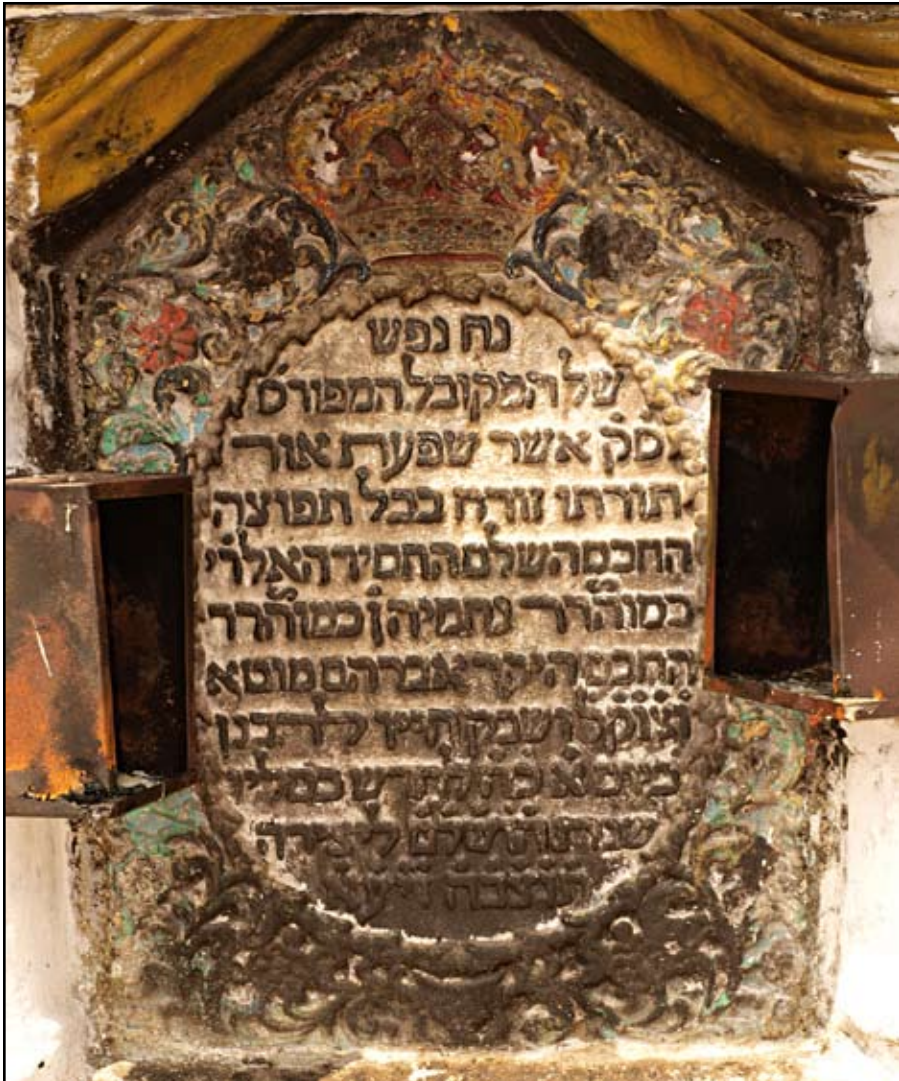 נח נפש
של המקובל המפורס׳
ס׳ק אשר שפעת אור
תורתו זורח בכל תפוצה
החכם השלם החסיד האלהי
כמוהרר נחמיה ן׳ כמוהרר
החכם היקר אברהם מוטא
זצוקל ושבק חיי לרבנן
ביום א׳ כה לחדש כסליו
שנת ליצירה
תנצבה